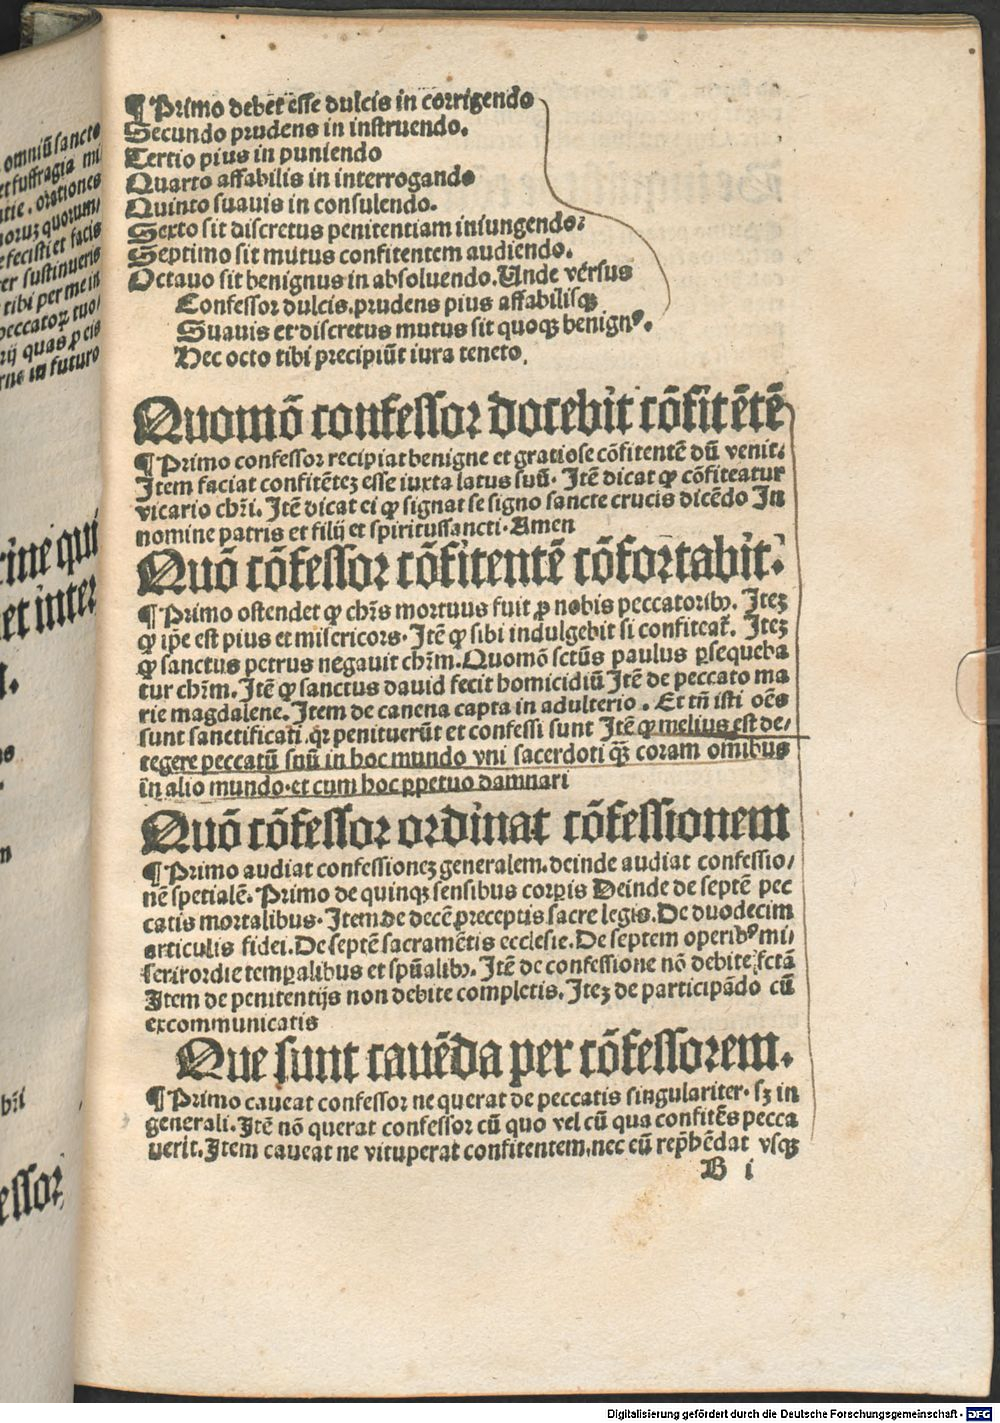 omniū sancto
et suffragia mi
tie . orationes
noruꝫ quorum/
e fecisti et facis
er sustinueris
tibi per me in
peccatoꝝ tuo/
rij quas ꝓ eis
rne in futuro
rine qui
et inter
bri
essor
¶ Primo debet esse dulcis in corrigendo
Secundo prudens in instruendo.
Tertio pius in puniendo
Quarto affabilis in interrogando
Quinto suauis in consulendo.
Sexto sit discretus penitentiam iniungendo:
Septimo sit mutus confitentem audiendo.
Octauo sit benignus in absoluendo. Unde versus
Confessor dulcis, prudens pius affabilisqꝫ
Suauis et discretus mutus sit quoqꝫ benignꝰ.
Hec octo tibi precipiūt iura teneto.
Quomō confessor docebit cōfitētē
¶ Primo confessor recipiat benigne et gratiose cōfitentē dū venit:
Item faciat confitēteꝫ esse iuxta latus suū. Itē dicat ꝙ cōfiteatur
vicario chri̅. Itē dicat ei ꝙ signat se signo sancte crucis dicēdo In
nomine patris et filij et spiritussancti. Amen
Quō cōfessor cōfitentē cōfortabit:
¶ Primo ostendet ꝙ chr̄s mortuus fuit ꝓ nobis peccatoribꝫ. Iteꝫ
ꝙ ip̄e est pius et misericors. Itē ꝙ sibi indulgebit si confiteat̄. Iteꝫ
ꝙ sanctus petrus negauit chr̄m. Quomō sctūs paulus ꝑsequeba
tur chr̄m. Itē ꝙ sanctus dauid fecit homicidiū Itē de peccato ma
rie magdalene. Item de canena capta in adulterio . Et tn̄ isti oēs
sunt sanctificati. qꝛ penituerūt et confessi sunt Itē ꝙ melius est de/
tegere peccatū suū in hoc mundo vni sacerdoti qꝫ̄ coram omībus
in alio mundo. et cum hoc ꝑpetuo damnari
Quō cōfessor ordinat cōfessionem
¶ Primo audiat confessioneꝫ generalem. deinde audiat confessio/
nē spetialē. Primo de quinqꝫ sensibus corꝑis Deinde de septē pec
catis mortalibus. Item de decē preceptis sacre legis. De duodecim
articulis fidei. De septē sacramētis ecclesie. De septem operibꝰ mi/
sericordie temꝑalibus et spūalibꝫ. Itē de confessione nō debite fctā
Item de penitentijs non debite completis. Iteꝫ de participādo cū
excommunicatis
Que sunt cauēda per cōfessorem.
¶ Primo caueat confessor ne querat de peccatis singulariter. sꝫ in
generali. Itē nō querat confessor cū quo vel cū qua confitēs pecca
uerit. Item caueat ne vituperat confitentem, nec eū rep̄hēdat vsqꝫ
B i
Digitalisierung gefördert durch die Deutsche Forschungsgemeinschaft - DFG